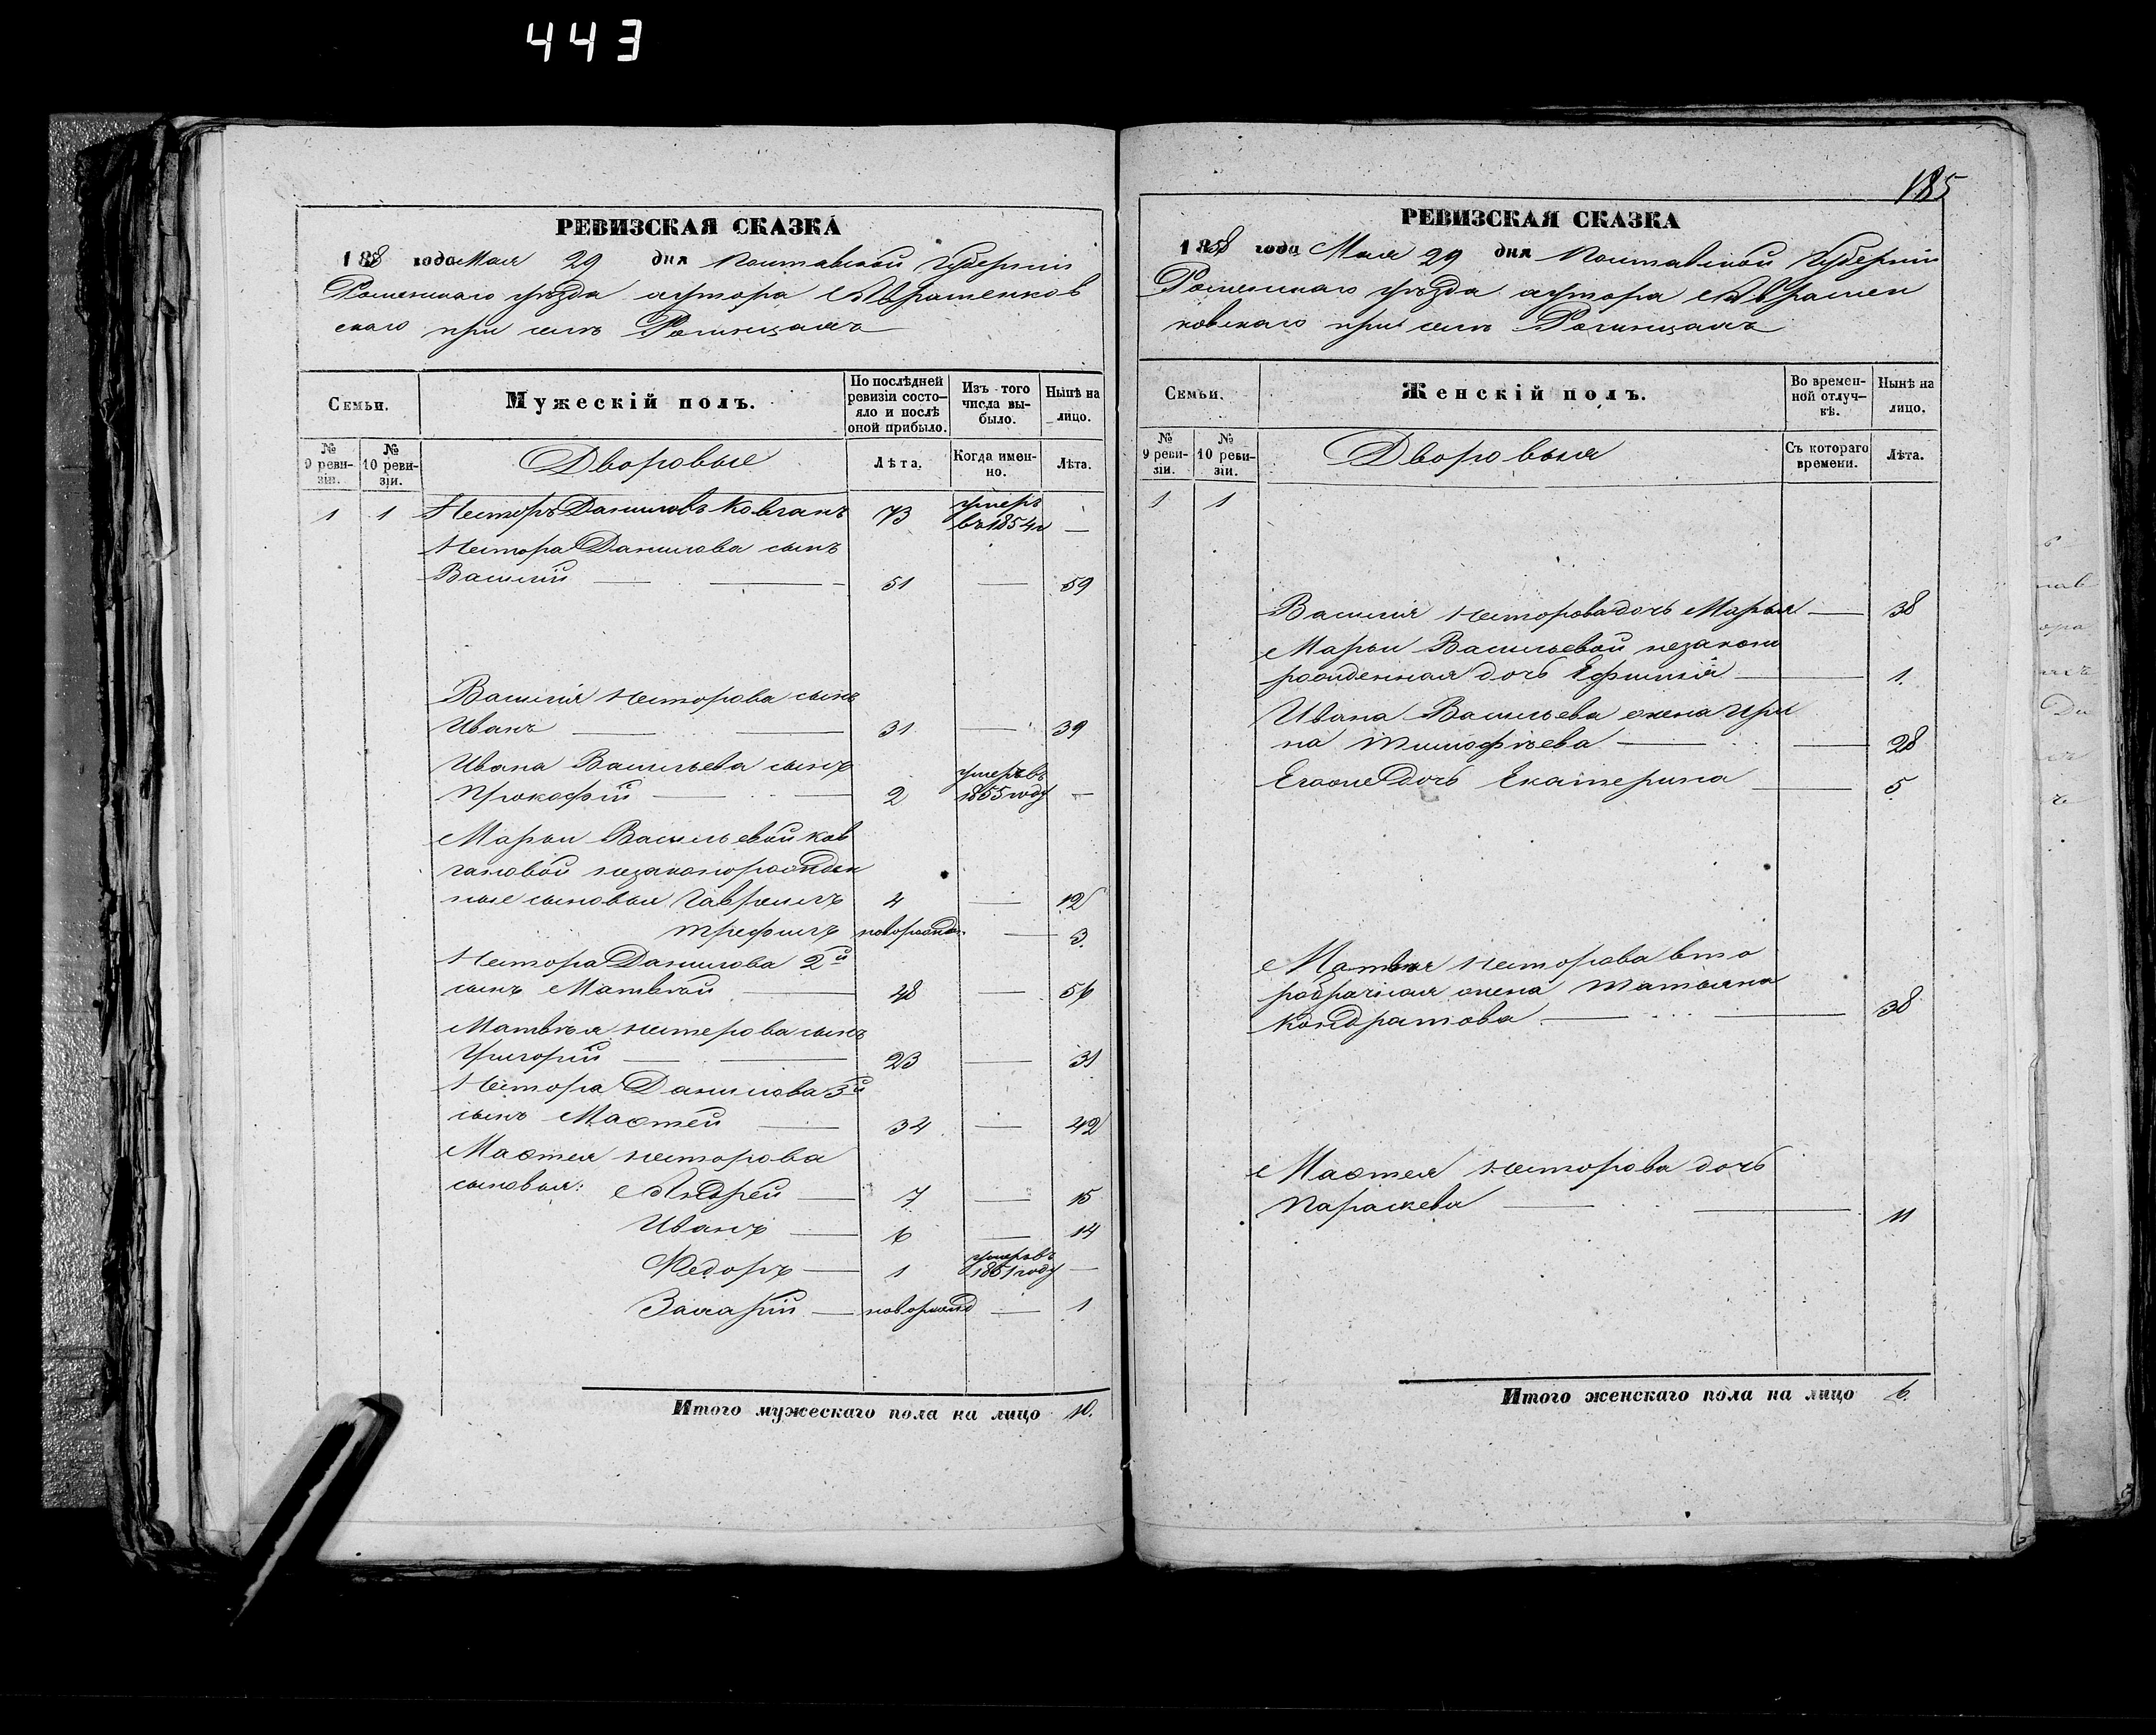 443
РЕВИЗСКАЯ СКАЗКА
1858 года Мая 29 дня Полтавской Губерніи
Роменскаго уѣзда хутора Авраменков
скаго при селѣ Рогинцахъ
Семьи.
Мужескій полъ.
По послѣдней ревизіи состо-
яло и послѣ
оной прибыло.
Изъ того
числа вы-
было.
Нынѣ на
лицо.
№ 9 реви-
зіи.
№ 10 реви-
зіи.
Дворовые
Лѣта.
Когда имен-
но.
Лѣта.
1 1 Несторъ Даниловъ Ковганъ 73 умеръ въ 1854 г —
Нестора Данилова сынъ
Василій — — 51 — 59
Василія Несторова сынъ
Иванъ — — 31 — 39
Ивана Васильева сынъ
Прокофій — — 2 умеръ въ 1855 году —
Марьи Васильевой Ков
гановой незаконорожден
ные сыновья Гаврилъ 4 — 12
Трефилъ новорожд. — 3.
Нестора Данилова 2й
сынъ Матвѣй — 48 — 56
Матвѣя Нестерова сынъ
Григорій — — 23 — 31
Нестора Данилова 3й
сынъ Мафтей — 34 — 42
Мафтея Несторова
сыновья: Андрей — 7 — 15
Иванъ — 6 — 14
Федоръ — 1 умеръ въ 1851 году —
Захарій — новорожд — 1
Итого мужескаго пола на лицо 10.
185
РЕВИЗСКАЯ СКАЗКА
1858 года Мая 29 дня Полтавской Губерніи
Роменскаго уѣзда хутора Аврамен
ковскаго при селѣ Рогинцахъ
Семьи.
Женскій полъ.
Во времен-
ной отлуч-
кѣ.
Нынѣ на
лицо.
№ 9 реви-
зіи.
№ 10 реви-
зіи.
Дворовыя
Съ котораго
времени.
Лѣта.
1 1
Василія Несторова дочь Марья — 38
Марьи Васильевой незакон
рожденная дочь Ефимія — 1.
Ивана Васильева жена Ири
на Тимофѣева — — 28
Егоже дочь Екатерина — 5.
Матвѣя Несторова вто
робрачная жена Татьяна
Кондратова — — 38
Мафтея Несторова дочь
Параскева — — 11
Итого женскаго пола на лицо 6.